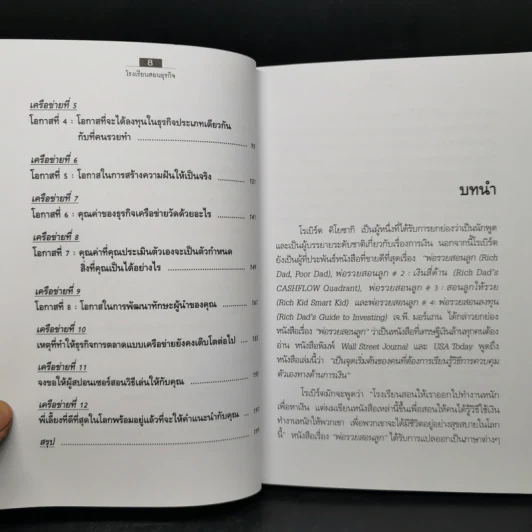 8
โรงเรียนสอนธุรกิจ
เครือข่ายที่ 5
โอกาสที่ 4 : โอกาสที่จะได้ลงทุนในธุรกิจประเภทเดียวกัน
กับที่คนรวยทำ
เครือข่ายที่ 6
โอกาสที่ 5 : โอกาสในการสร้างความฝันให้เป็นจริง
เครือข่ายที่ 7
โอกาสที่ 6 : คุณค่าของธุรกิจเครือข่ายวัดด้วยอะไร
เครือข่ายที่ 8
โอกาสที่ 7 : คุณค่าที่คุณประเมินตัวเองจะเป็นตัวกำหนด
สิ่งที่คุณเป็นได้อย่างไร
เครือข่ายที่ 9
โอกาสที่ 8 : โอกาสในการพัฒนาทักษะผู้นำของคุณ
เครือข่ายที่ 10
เหตุที่ทำให้ธุรกิจการตลาดแบบเครือข่ายยังคงเติบโตต่อไป
เครือข่ายที่ 11
จงขอให้ผู้สปอนเซอร์สอนวิธีเล่นให้กับคุณ
เครือข่ายที่ 12
พี่เลี้ยงที่ดีที่สุดในโลกพร้อมอยู่แล้วที่จะให้คำแนะนำกับคุณ
สรุป
บทนำ
โรเบิร์ต คิโยซากิ เป็นผู้หนึ่งที่ได้รับการยกย่องว่าเป็นนักพูด
และเป็นผู้บรรยายระดับชาติเกี่ยวกับเรื่องการเงิน นอกจากนี้โรเบิร์ต
ยังเป็นผู้ที่ประพันธ์หนังสือที่ขายดีที่สุดเรื่อง "พ่อรวยสอนลูก (Rich
Dad, Poor Dad), พ่อรวยสอนลูก # 2 : เงินสี่ด้าน (Rich Dad's
CASHFLOW Quadrant), พ่อรวยสอนลูก # 3 : สอนลูกให้รวย
(Rich Kid Smart Kid) และพ่อรวยสอนลูก # 4: พ่อรวยสอนลงทุน
(Rich Dad's Guide to Investing) เจ.พี. มอร์แกน ได้กล่าวยกย่อง
หนังสือเรื่อง "พ่อรวยสอนลูก" ว่าเป็นหนังสือที่เศรษฐีเงินล้านทุกคนต้อง
อ่าน หนังสือพิมพ์ Wall Street Journal และ USA Today พูดถึง
หนังสือเล่มนี้ว่า "เป็นจุดเริ่มต้นของคนที่ต้องการเรียนรู้วิธีการควบคุม
ตัวเองทางด้านการเงิน"
โรเบิร์ตมักจะพูดว่า "โรงเรียนสอนให้เราออกไปทำงานหนัก
เพื่อหาเงิน แต่ผมเขียนหนังสือเหล่านี้ขึ้นเพื่อสอนให้คนได้รู้วิธีใช้เงิน
ทำงานหนักให้พวกเขา เพื่อพวกเขาจะได้มีชีวิตอยู่อย่างสุขสบายในโลก
นี้" หนังสือเรื่อง "พ่อรวยสอนลูก" ได้รับการแปลออกเป็นภาษาต่างๆ